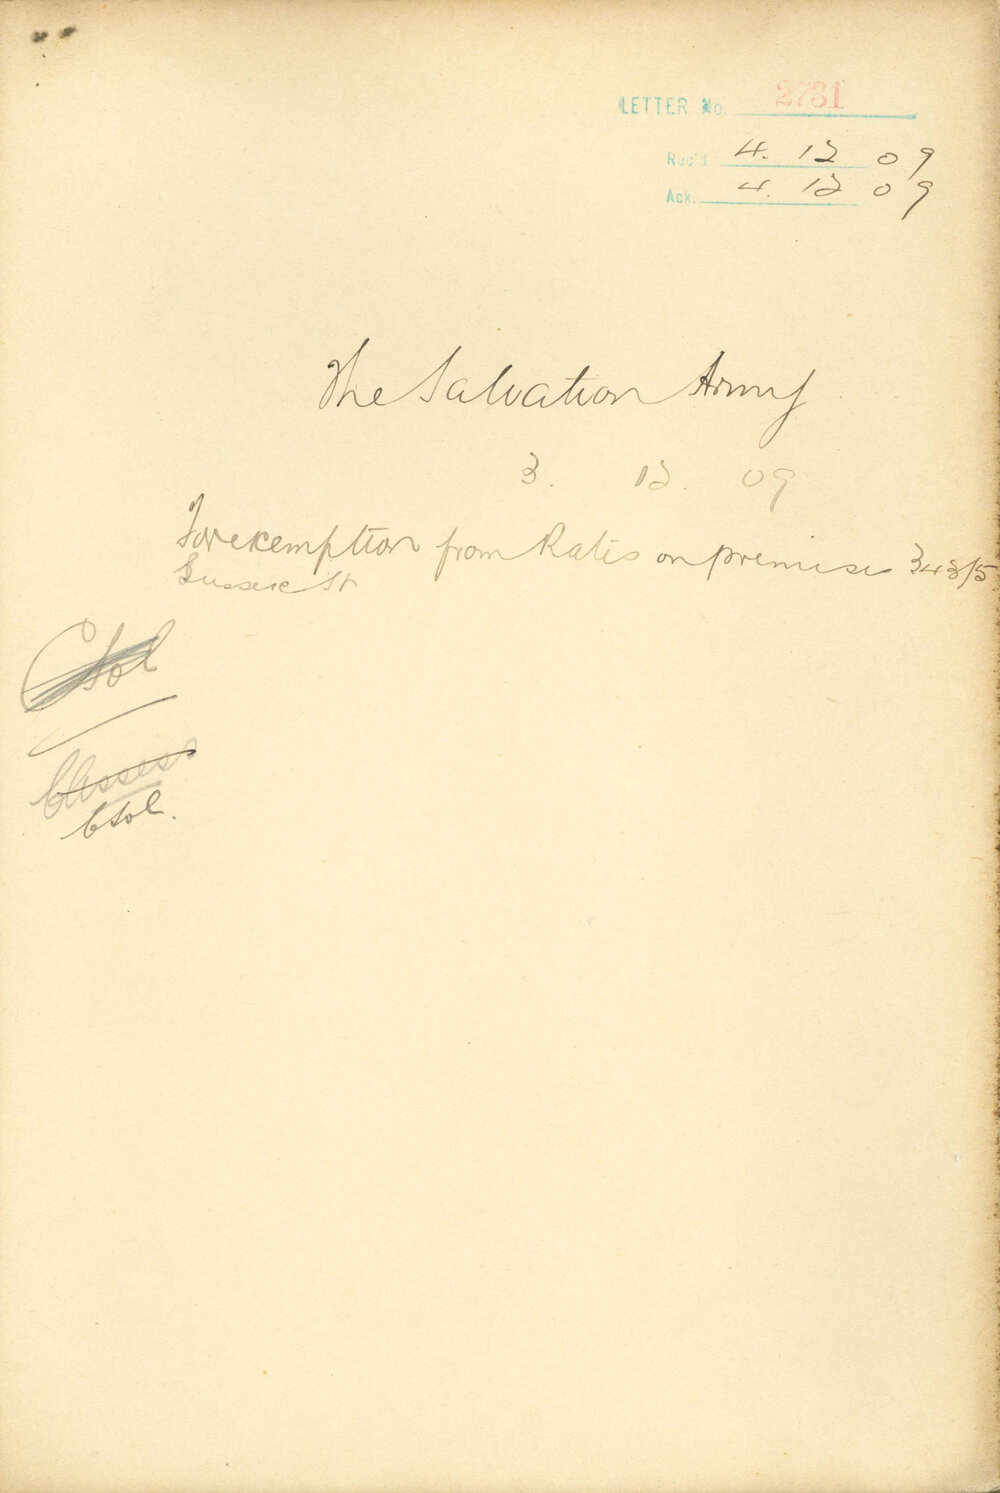 LETTER No. 2731
Rec'd 4. 12 09
Ack. 4. 12 09
The Salvation Army
3. 12. 09
For exemption from Rates on premises 343/5
Sussex St
C Sol
C Assess
C Sol.